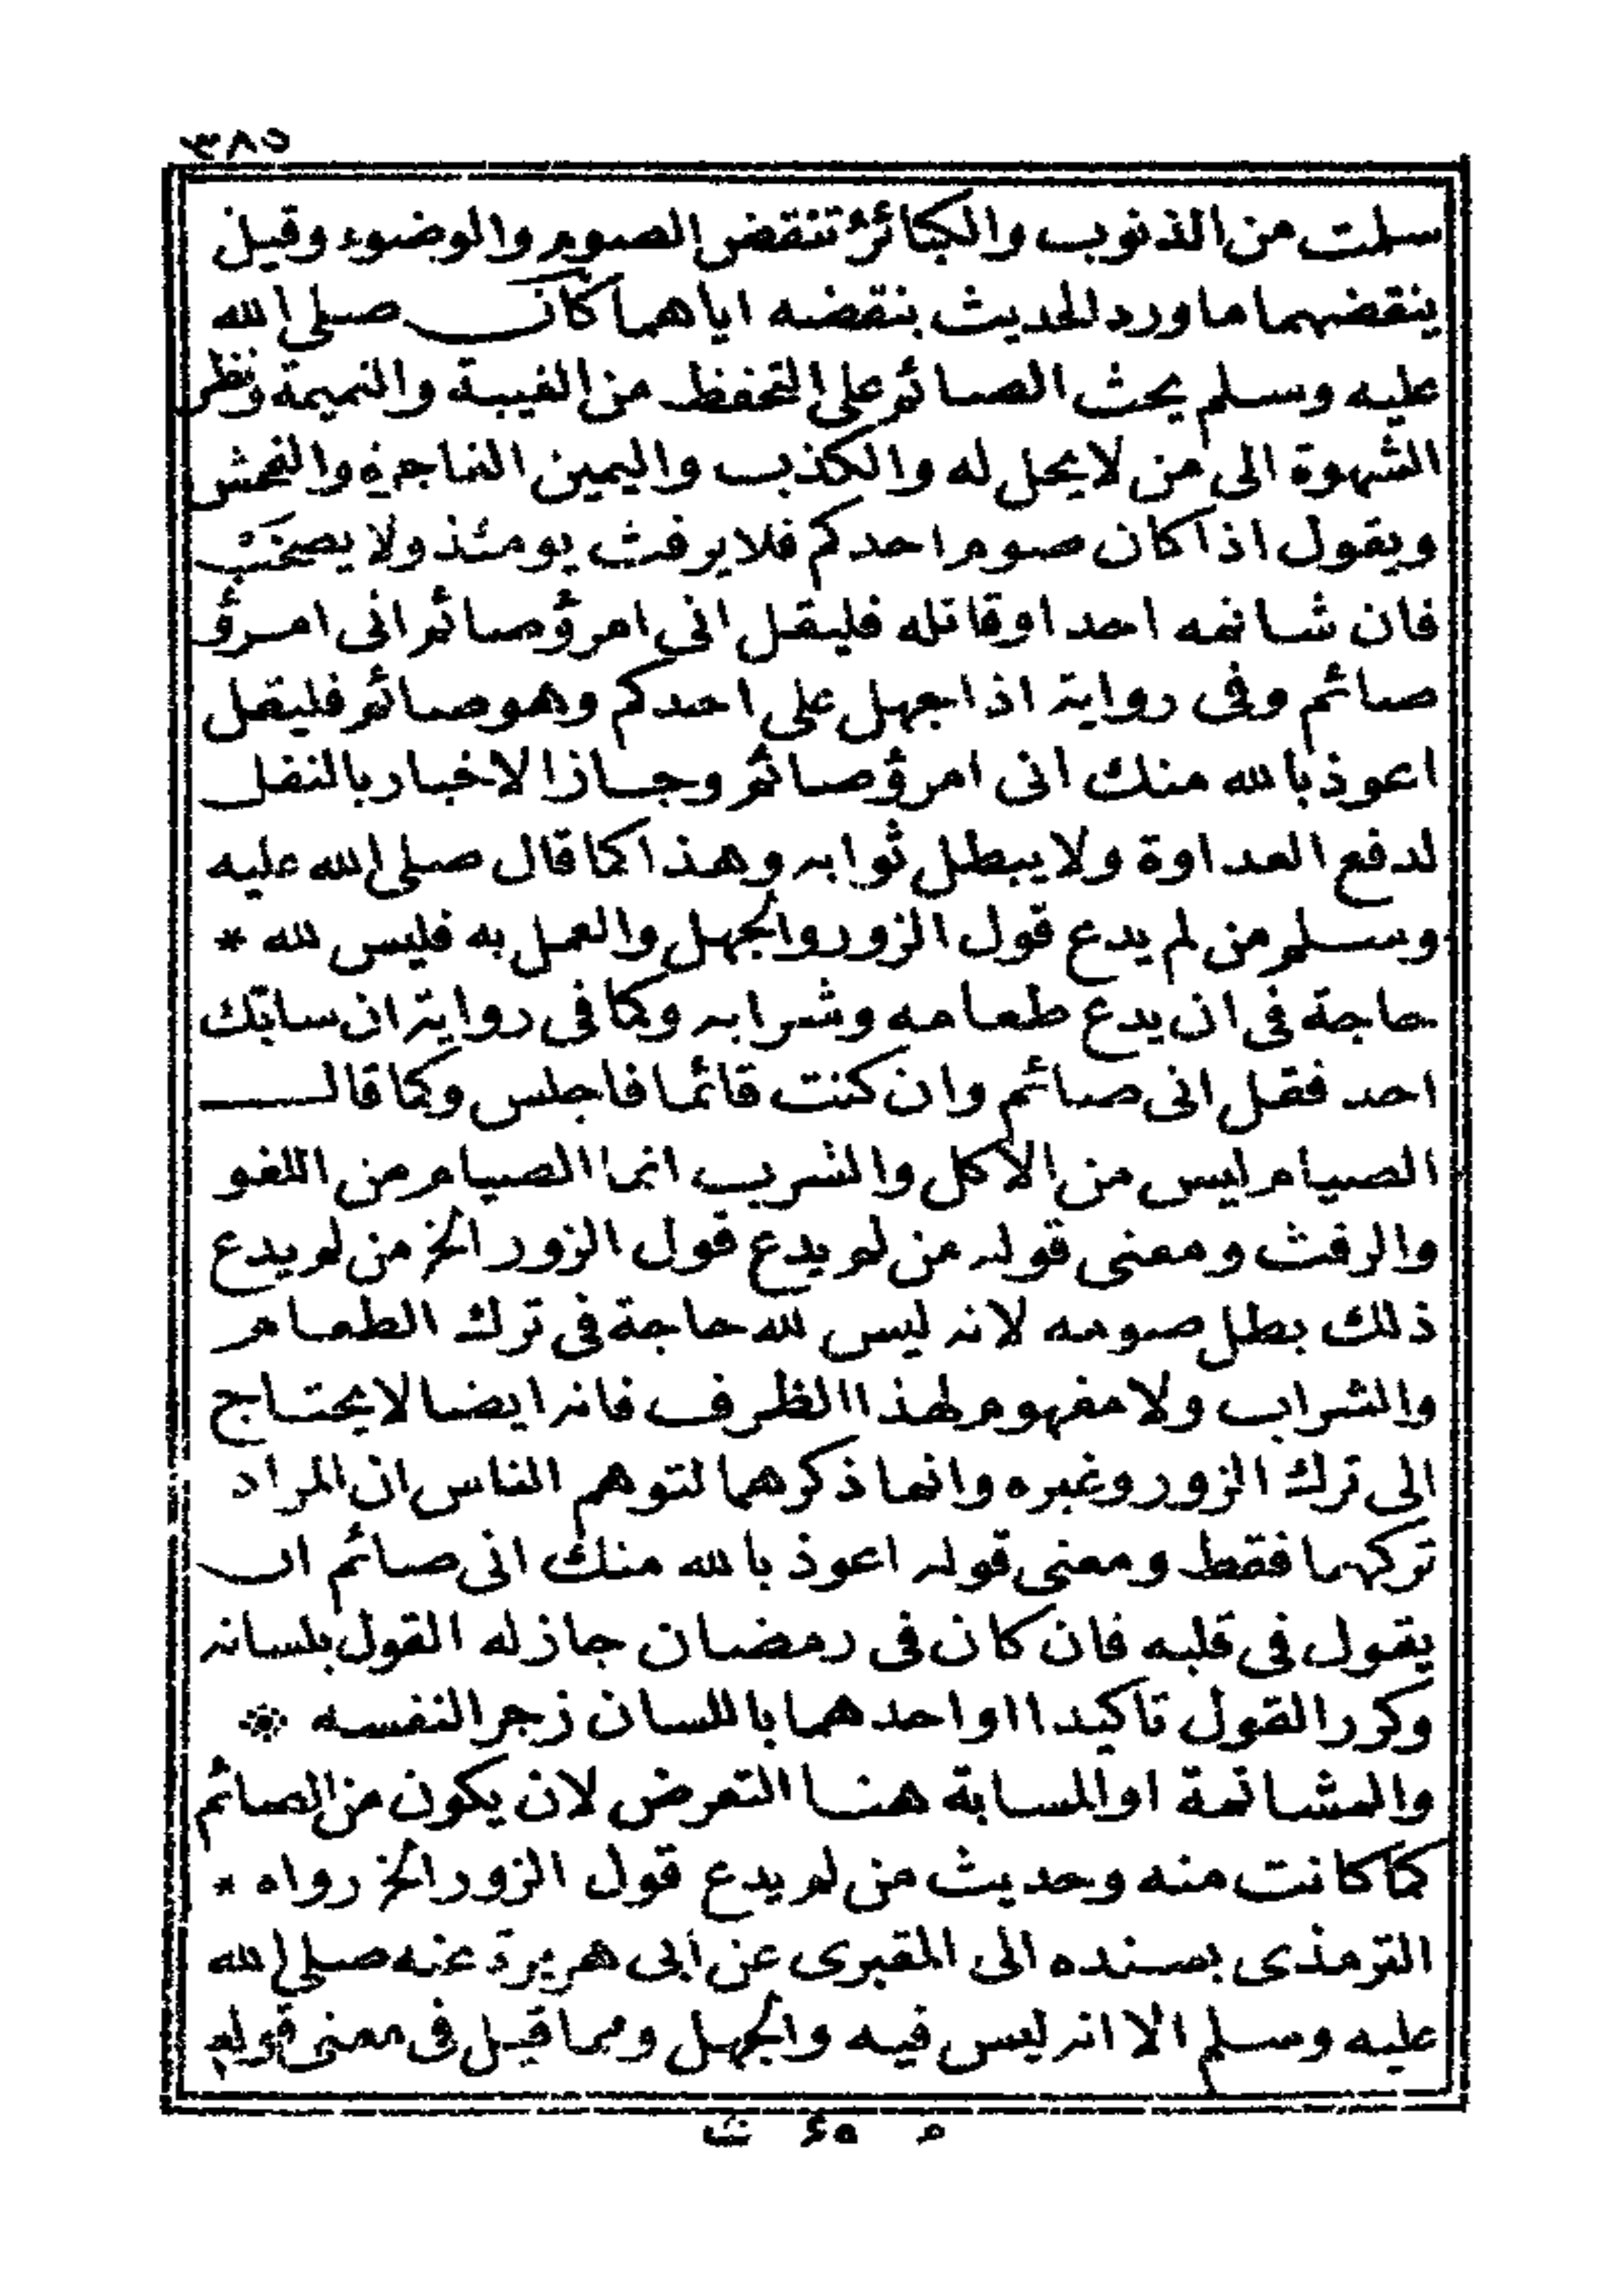 ٣٨٥
سلمت من الذنوب والكبائر تنقض الصوم والوضوء وقيل
ينقضهما ما ورد الحديث بنقضه اياهما كان صلى الله
عليه وسلم يحث الصائم على التحفظ من الغيبة والنميمة ونظر
الشهوة الى من لا يحل له والكذب واليمين الفاجرة والفحش
ويقول اذا كان صوم احدكم فلا يرفث يومئذ ولا يصخب
فان شاتمه احد او قاتله فليقل انى امرؤ صائم انى امرؤ
صائم وفى رواية اذا جهل على احدكم وهو صائم فليقل
اعوذ بالله منك انى امرؤ صائم وجاز الاخبار بالنفل
لدفع العداوة ولا يبطل ثوابه وهذا كما قال صلى الله عليه
وسلم من لم يدع قول الزور والجهل والعمل به فليس لله *
حاجة فى ان يدع طعامه وشرابه وكما فى رواية ان سابك
احد فقل انى صائم وان كنت قائما فاجلس وكما قال
الصيام ليس من الاكل والشرب انما الصيام من اللغو
والرفث ومعنى قوله من لم يدع قول الزور الخ من لم يدع
ذلك بطل صومه لانه ليس لله حاجة فى ترك الطعام
والشراب ولا مفهوم لهذا الظرف فانه ايضا لا يحتاج
الى ترك الزور وغيره وانما ذكرهما لتوهم الناس ان المراد
تركهما فقط ومعنى قوله اعوذ بالله منك انى صائم ان
يقول فى قلبه فان كان فى رمضان جاز له القول بلسانه
وكرر القول تاكيدا او احدهما باللسان زجر النفسه *
والمشاتمة او المسابة هنا التعرض لان يكون من الصائم
كما كانت منه وحديث من لم يدع قول الزور الخ رواه *
الترمذى بسنده الى المقبرى عن ابى هريرة عنه صلى الله
عليه وسلم الا انه ليس فيه والجهل ومما قيل فى معنى قوله